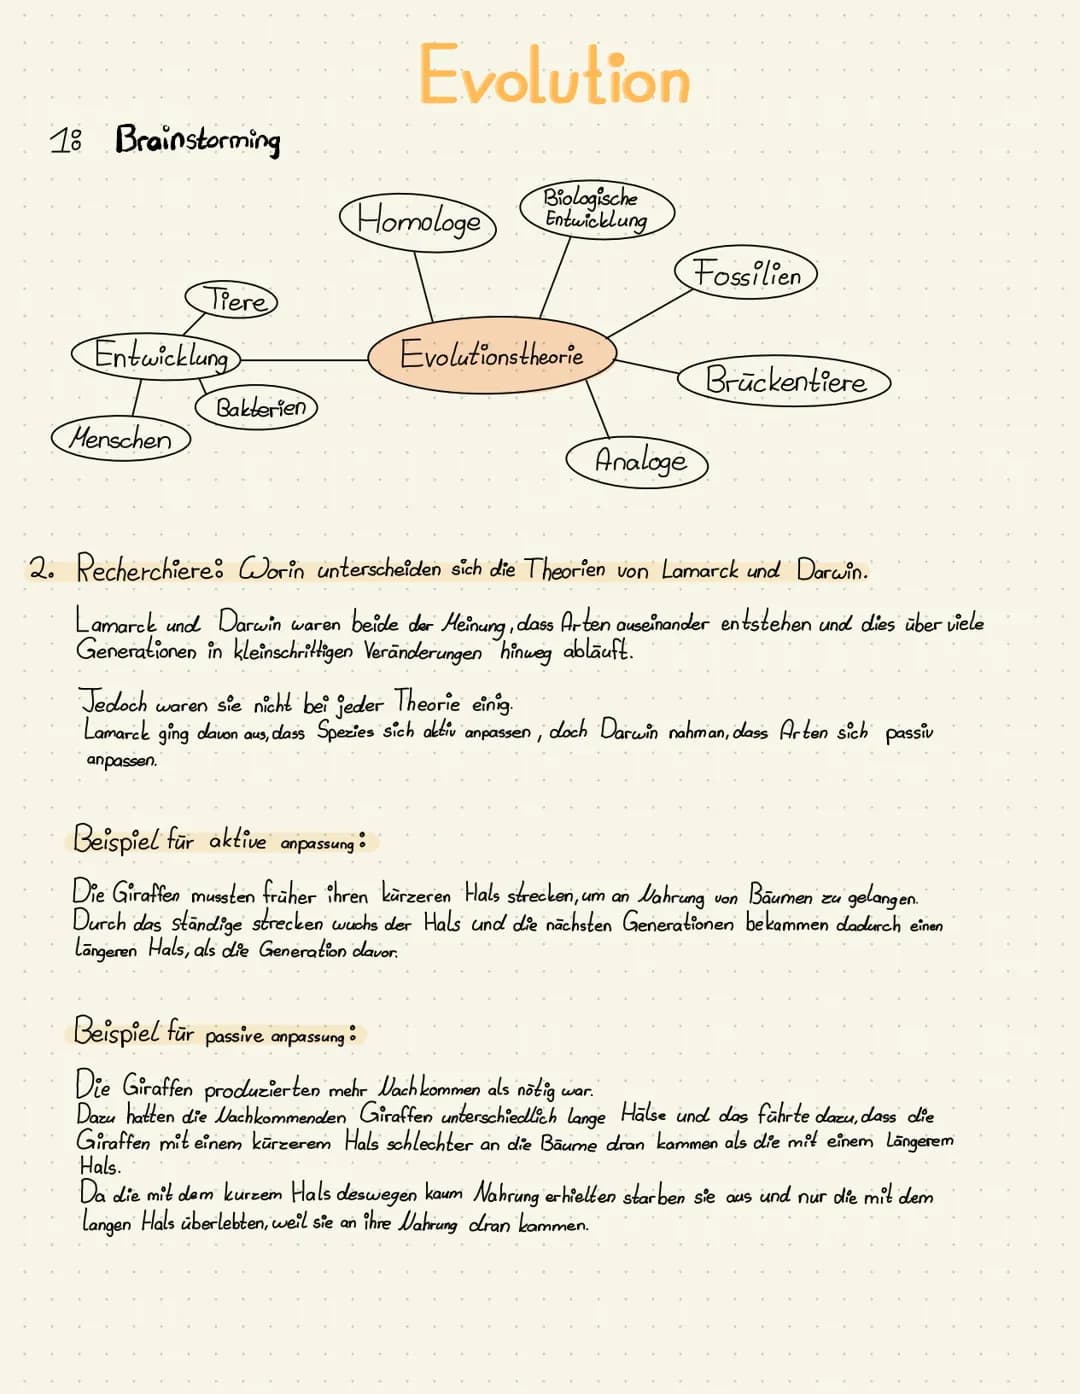 Evolution
1: Brainstorming
Homologe
Biologische
Entwicklung
Fossilien
Tiere
Entwicklung
Evolutionstheorie
Brückentiere
Bakterien
Menschen
Analoge
2. Recherchiere: Worin unterscheiden sich die Theorien von Lamarck und Darwin.
Lamarck und Darwin waren beide der Meinung, dass Arten auseinander entstehen und dies über viele
Generationen in kleinschrittigen Veränderungen hinweg abläuft.
Jedoch waren sie nicht bei jeder Theorie einig.
Lamarck ging davon aus, dass Spezies sich aktiv anpassen, doch Darwin nahm an, dass Arten sich passiv
anpassen.
Beispiel für aktive anpassung:
Die Giraffen mussten früher ihren kürzeren Hals strecken, um an Nahrung von Bäumen zu gelangen.
Durch das ständige strecken wuchs der Hals und die nächsten Generationen bekammen dadurch einen
längeren Hals, als die Generation davor.
Beispiel für passive anpassung:
Die Giraffen produzierten mehr Nachkommen als nötig war.
Dazu hatten die Nachkommenden Giraffen unterschiedlich lange Hälse und das führte dazu, dass die
Giraffen mit einem kürzerem Hals schlechter an die Bäume dran kammen als die mit einem Längerem
Hals.
Da die mit dem kurzem Hals deswegen kaum Nahrung erhielten starben sie aus und nur die mit dem
langen Hals überlebten, weil sie an ihre Nahrung dran kammen.